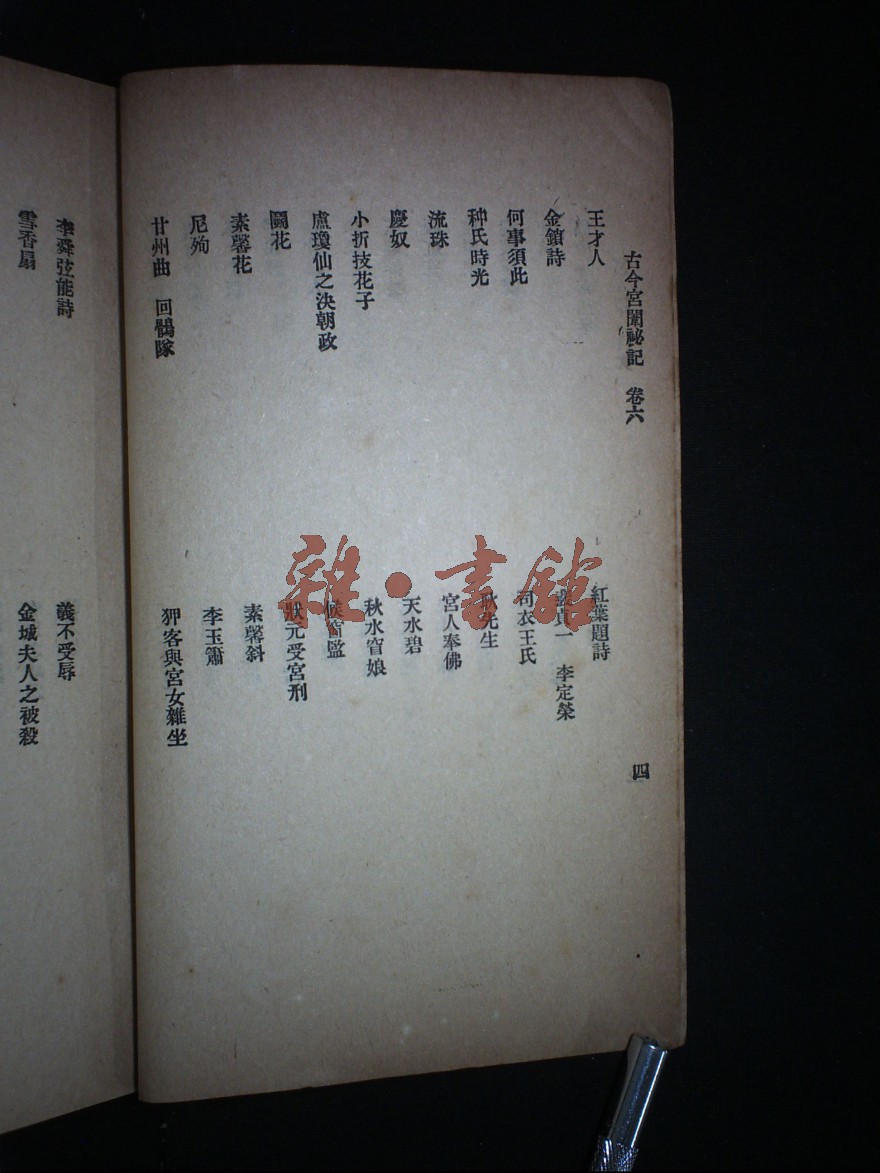 古今宮闈祕記 卷六
四
王才人
紅葉題詩
金錧詩
貞一 李定榮
何事須此
司衣王氏
种氏時光
先生
流珠
宮人奉佛
慶奴
天水碧
小折技花子
秋水窅娘
盧瓊仙之決朝政
候窗監
鬭花
狀元受宮刑
素馨花
素馨斜
尼殉
李玉簫
甘州曲 回鶻隊
狎客與宮女雜坐
李舜弦能詩
義不受辱
雪香扇
金城夫人之被殺
雜·書館